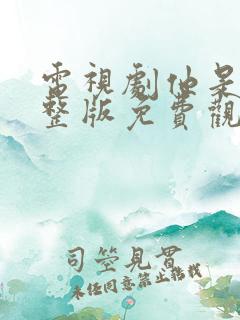 電視劇仙呆
整版免費觀
司箜見貫
未经同意禁止转载